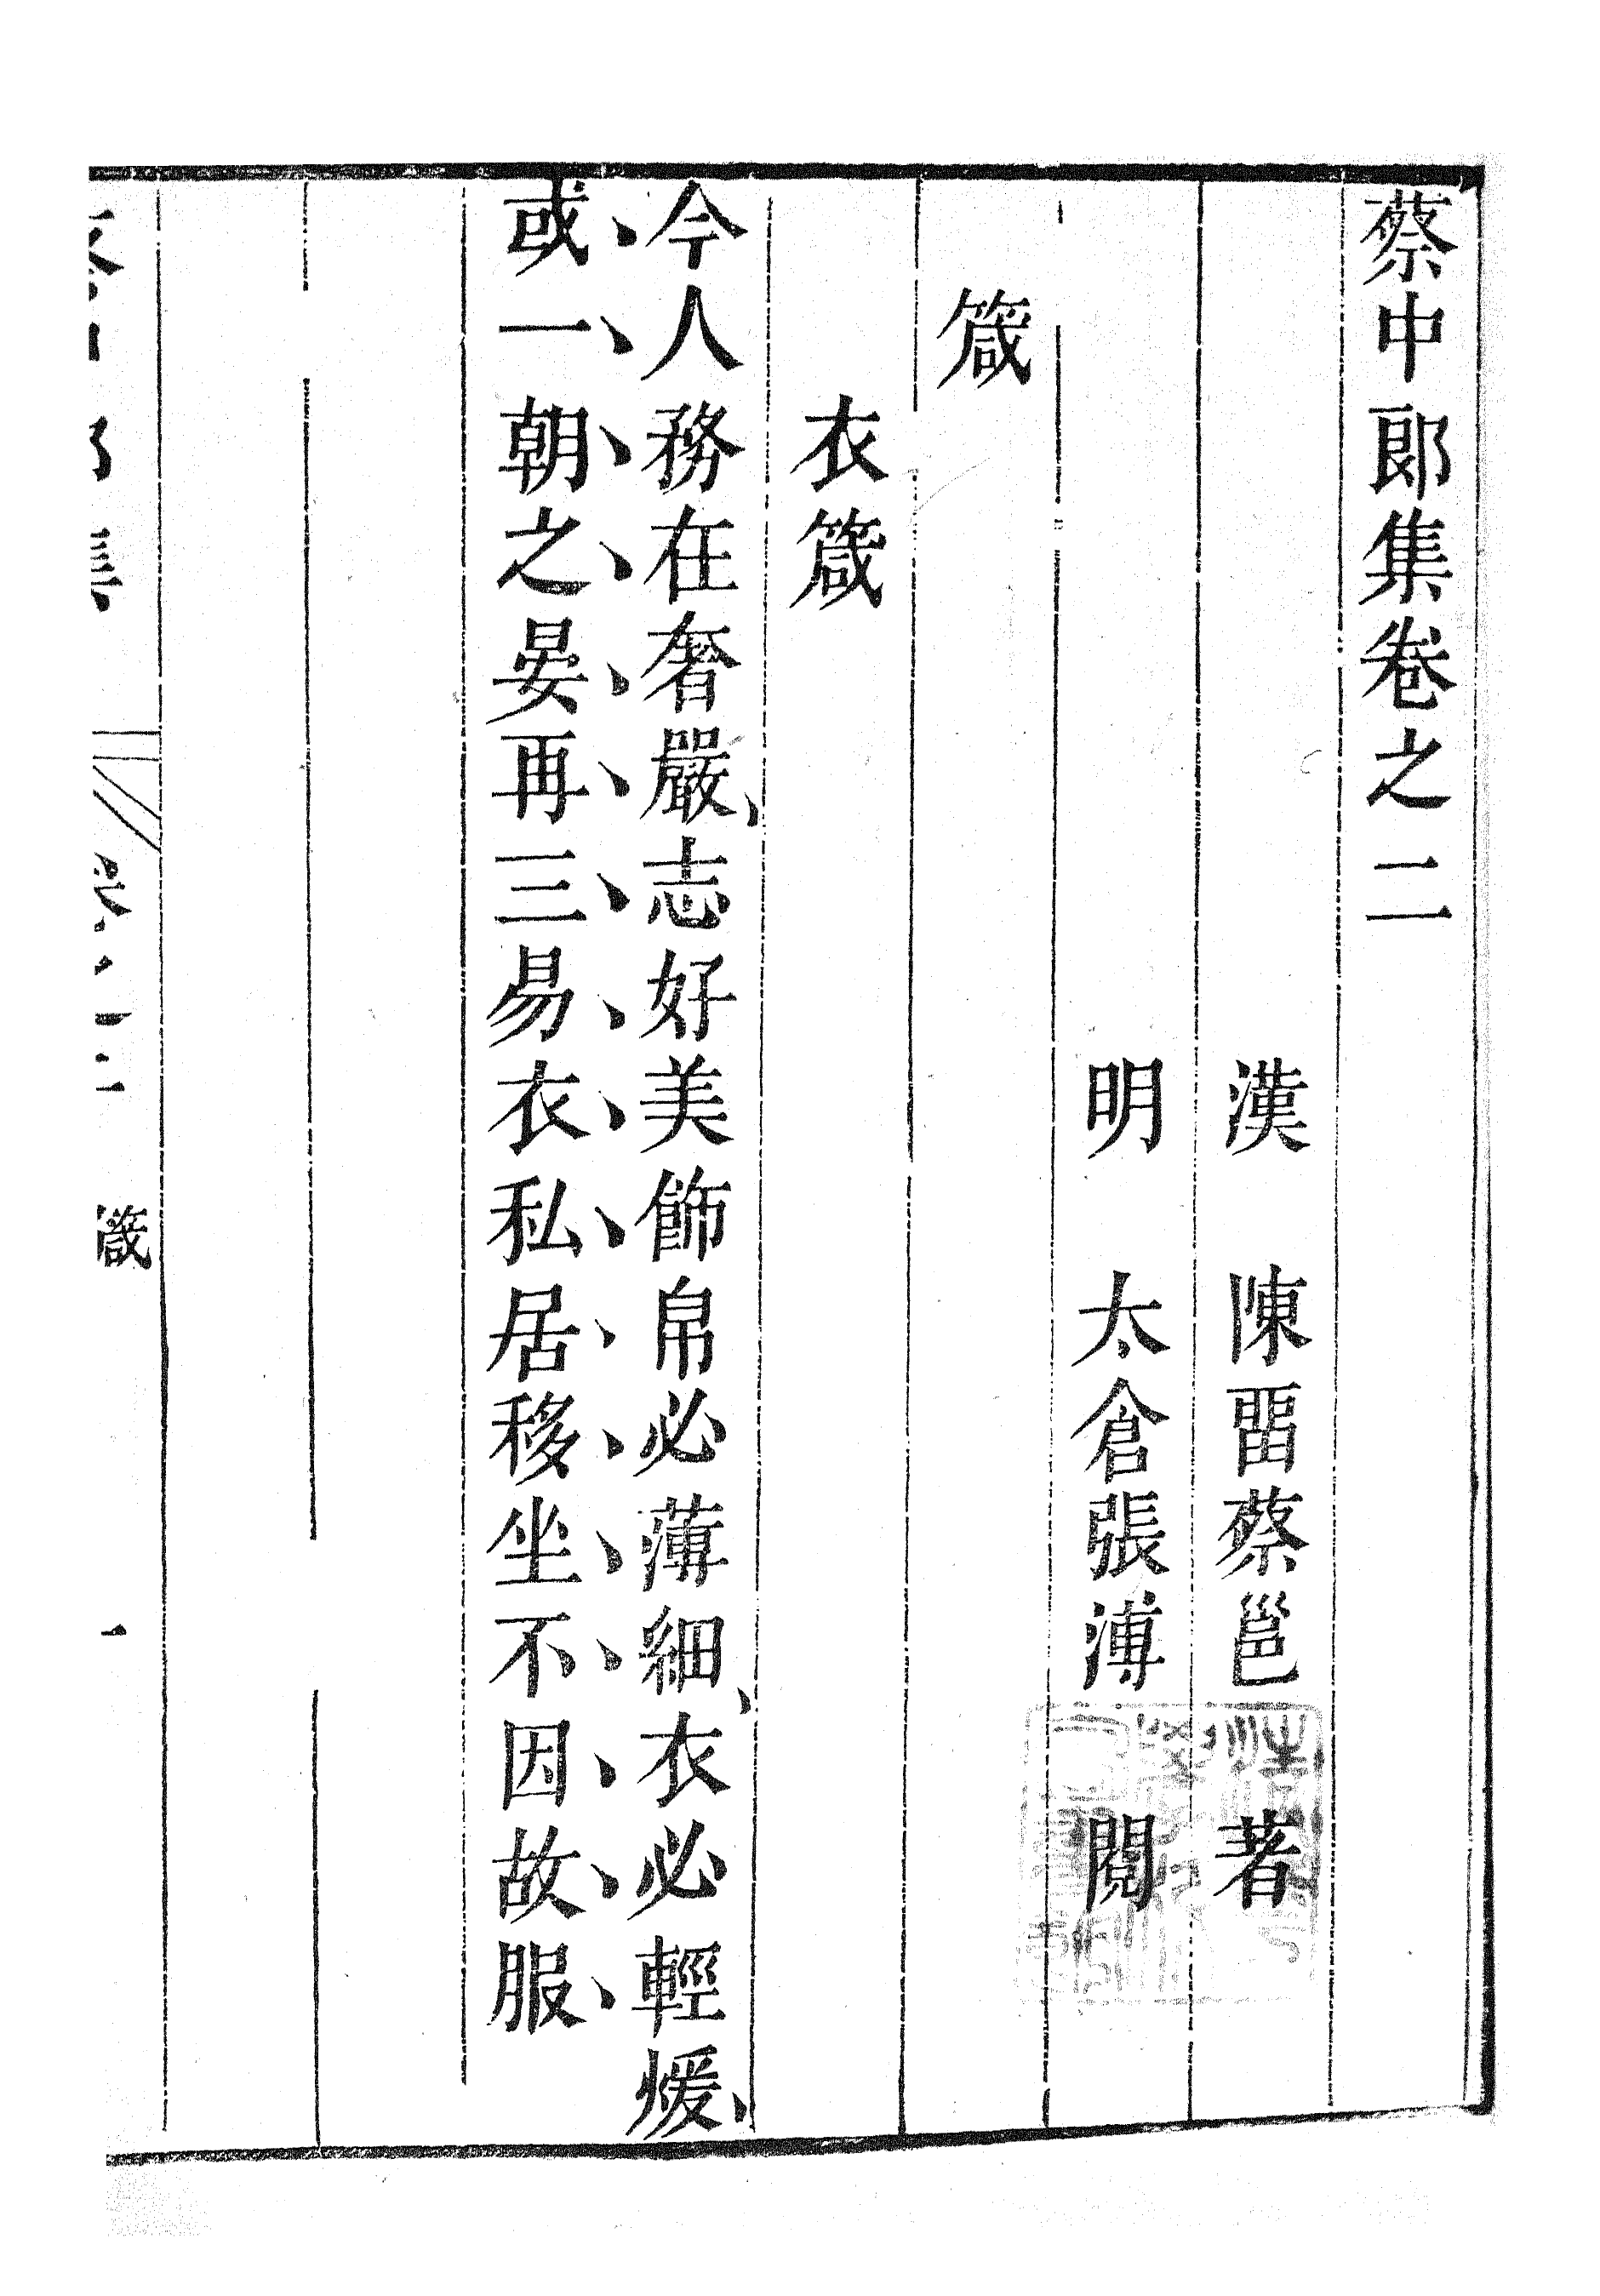 蔡中郎集卷之二
漢 陳畱蔡邕 著
明 太倉張溥 閱
箴
衣箴
今人務在奢嚴、志好美飾帛必薄細、衣必輕煖、
或一朝之晏再三易衣私居移坐不因故服
箴
一